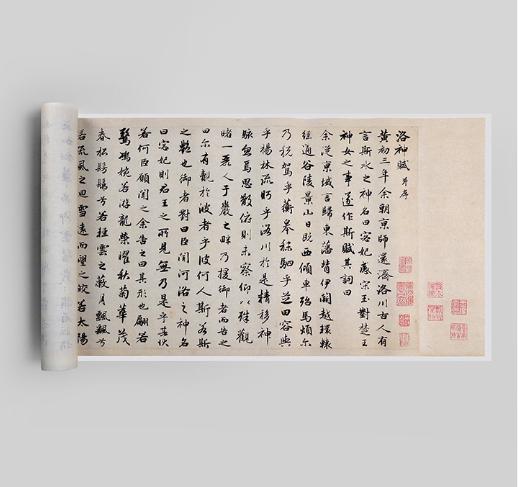 洛神賦 并序
黃初三年余朝京師還濟洛川古人有
言斯水之神名曰宓妃感宋玉對楚王
神女之事遂作斯賦其詞曰
余從京域言歸東藩背伊闕越轘轅
經通谷陵景山日既西傾車殆馬煩尔
乃稅駕乎蘅皋秣駟乎芝田容與
乎楊林流眄乎洛川於是精移神
駭忽焉思散俯則未察仰以殊觀
睹一麗人于巖之畔乃援御者而告之
曰尔有覿於彼者乎彼何人斯若斯
之豔也御者對曰臣聞河洛之神名
曰宓妃則君王之所見無乃是乎其狀
若何臣願聞之余告之曰其形也翩若
驚鴻婉若游龍榮曜秋菊華茂
春松髣髴兮若輕雲之蔽月飄飄兮
若流風之回雪遠而望之皎若太陽